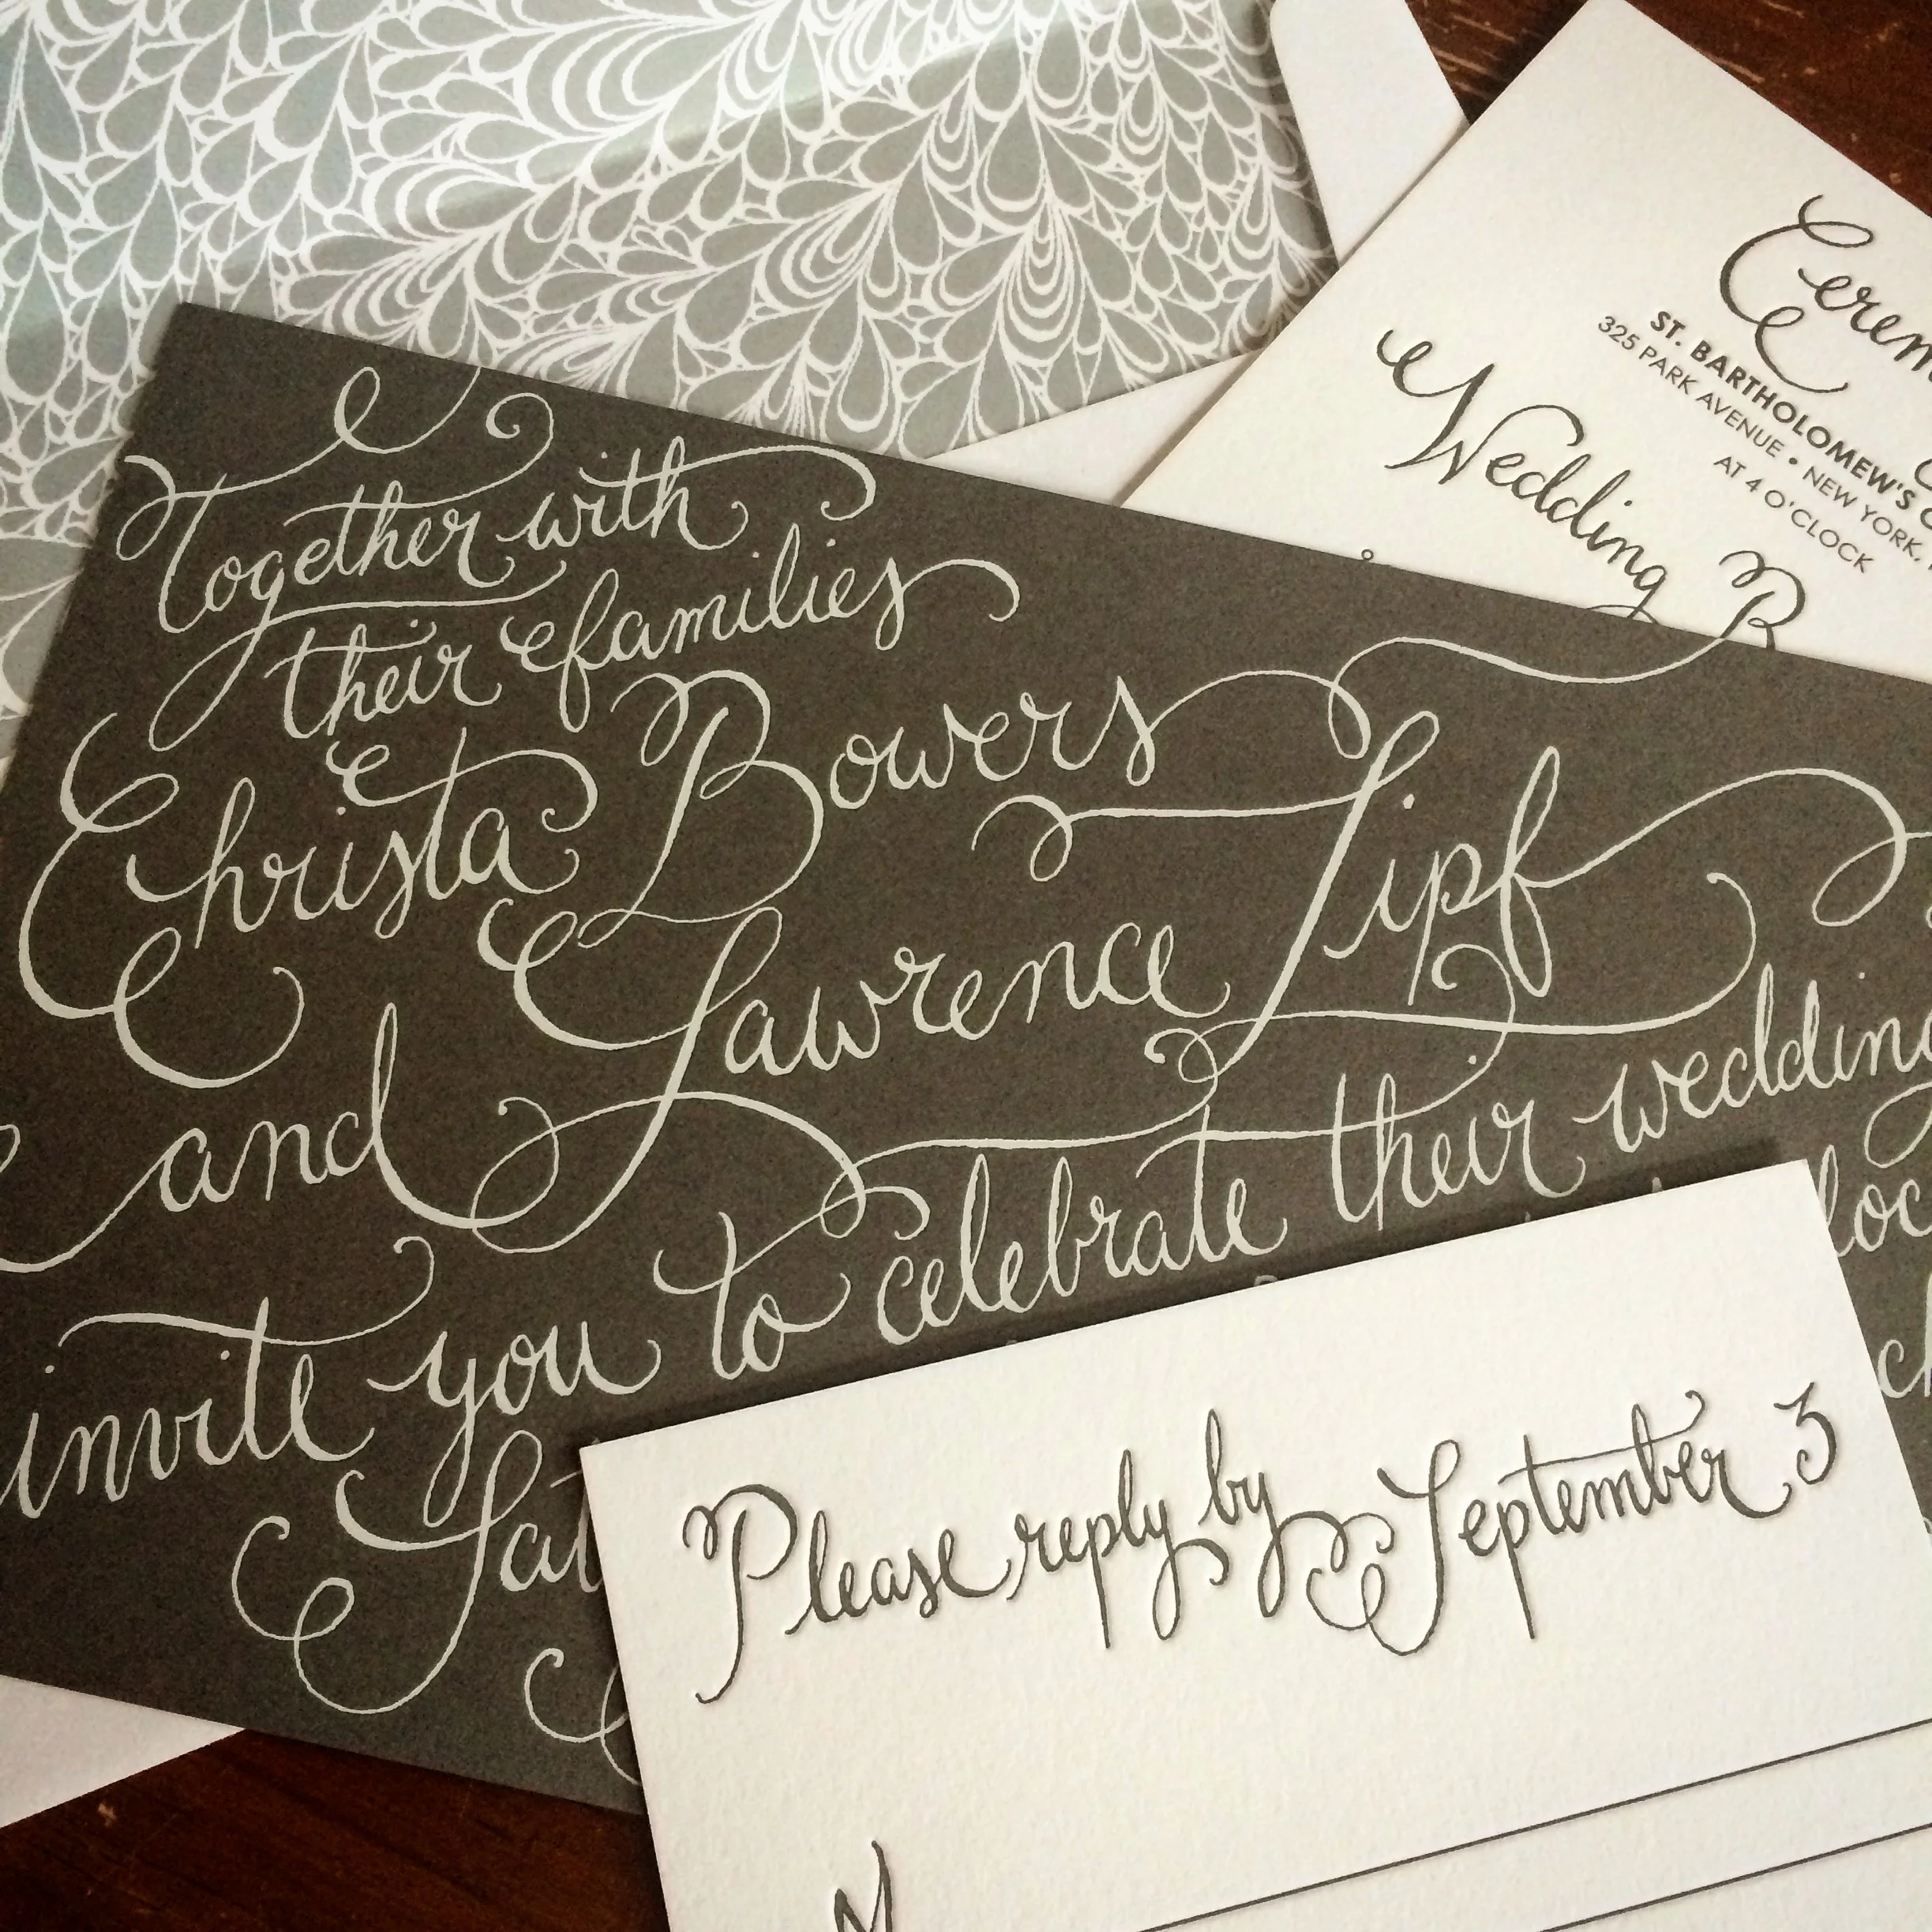 Together with
their families
Christa Bowers
and Lawrence Lipf
invite you to celebrate their wedding
ST. BARTHOLOMEW'S
325 PARK AVENUE • NEW YORK,
AT 4 O'CLOCK
Wedding
Please reply by September 3